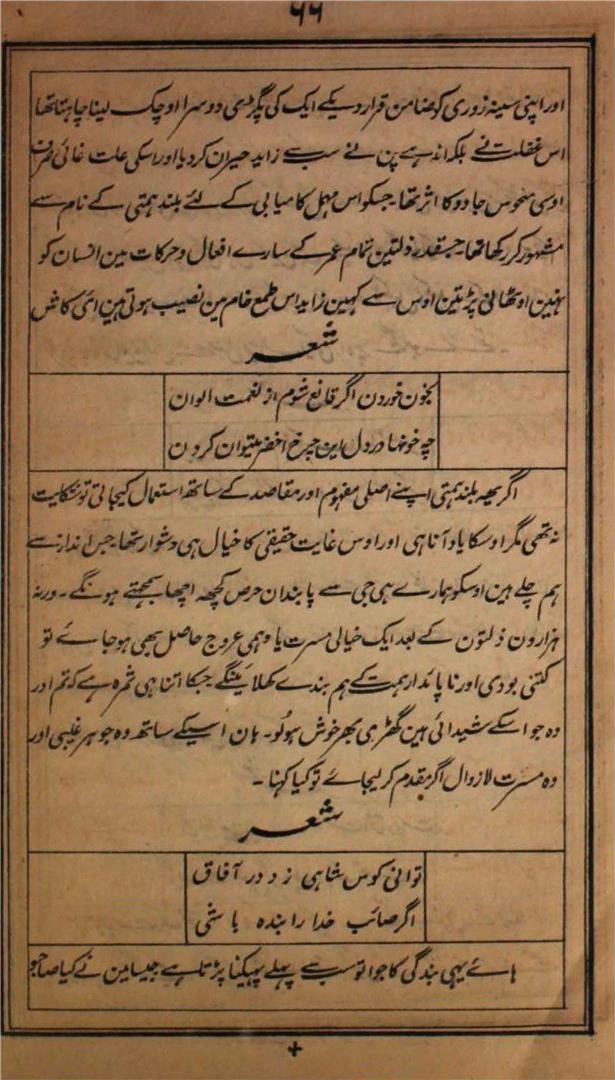 ۶۶
اور اپنی سینہ زوری کو ضامن قرار دیکے ایک کی پگڑی دوسرا اوچک لینا چاہتا تھا
اس غفلت نے بلکہ اندھے پن نے سب سے زاید حیران کردیا اور اسکی علت غائی صرف
اوسی منحوس جادو کا اثر تھا۔ جسکو اس مہمل کامیابی کے لئے بلند ہمتی کے نام سے
مشہور کر رکھا تھا۔ جسقدر ذلتین تمام عمر کے سارے افعال و حرکات مین انسان کو
نہین اوٹھانی پڑتین اوس سے کہین زاید اس طمع خام مین نصیب ہوتی ہین ای کاش
شعر
بخون خوردن اگر قانع شوم از نعمت الوان
چہ خونہا در دل این چرخ اخضر میتوان کردن
اگر یہہ بلند ہمتی اپنے اصلی مفہوم اور مقاصد کے ساتھ استعمال کیجاتی تو شکایت
نہ تھی مگر اوسکا یاد آنا ہی اور اوس غایت حقیقی کا خیال ہی دشوار تھا جس انداز سے
ہم چلے ہین اوسکو ہمارے ہی جی سے پابندان حرص کچھہ اچھا سمجھتے ہونگے۔ ورنہ
ہزارون ذلتون کے بعد ایک خیالی مسرت یا وہمی عروج حاصل بھی ہو جاے تو
کتنی بودی اور ناپائدار ہمت کے ہم بندے کھلائینگے جسکا اتنا ہی ثمرہ ہے کہ تم اور
وہ جو اسکے شیدائی ہین گھڑی بھر خوش ہولو۔ ہان اسیکے ساتھ وہ جوہر غیبی اور
وہ مسرت لازوال اگر مقدم کر لیجاے تو کیا کہنا۔
شعر
توانی کوس شاہی زد در آفاق
اگر صائب خدا را بندہ باشی
ہاے یہی بندگی کا جوا تو سب سے پہلے پہیکنا پڑتا ہے جیسا مین نے کیا صاحبو